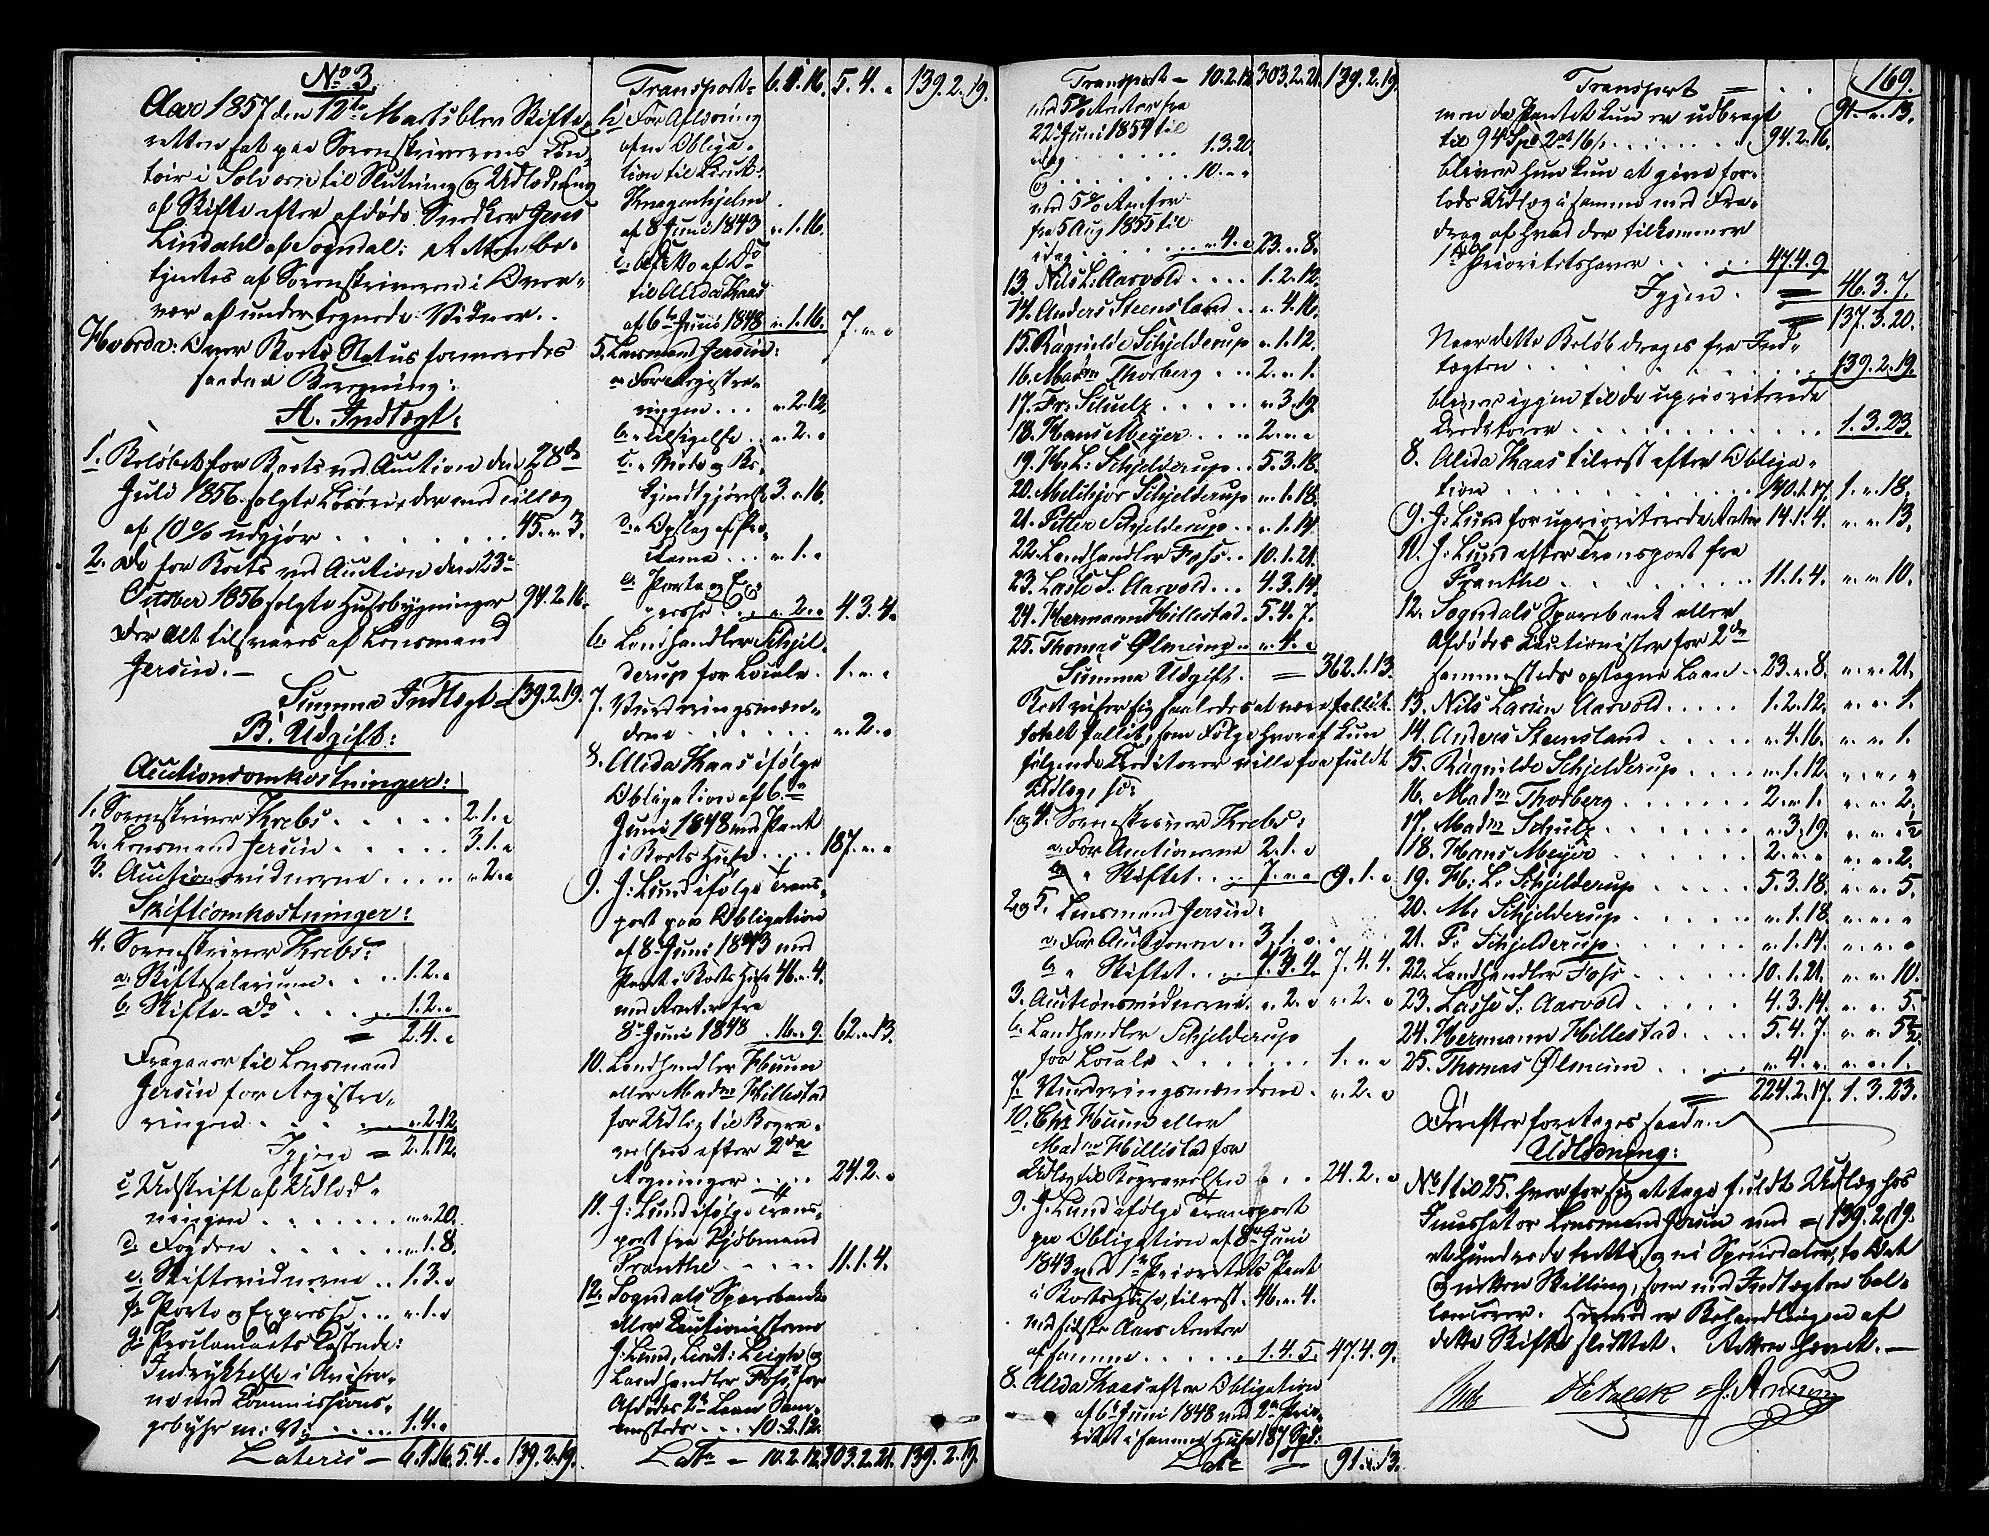 169.
No 3
Aar 1857 den 12te Marts blev Skifte-
retten sat paa Sorenskriverens Con-
toir i Solvorn til Slutning og Udlodning
af Skifte efter afdøde Snedker Jens
Lindahl af Sogndal: Retten be-
tjentes af Sorenskriveren i Over-
vær af undertegnede Vidner.
Hvorda: Over Boets Status formeredes
saadan Beregning:
A. Indtægt:
1. Beløbet for Boets ved Auction den 28de
Juli 1856 solgte Løsøre der med Tillæg
af 10% udgjør . . . 45. " 3.
2. Do for Boets ved Auction den 23de
October 1856 solgte Husebygninger 94. 2. 16.
der Alt tilsvares af Lensmand
Jersin. —
Summa Indtægt = 139. 2. 19.
B. Udgift:
Auctionsomkostninger:
1. Sorenskriver Krebs . . . 2. 1. "
2. Lensmand Jersin . . . 3. 1. "
3. Auctionsvidnerne . . . " 2. "
Skifteomkostninger:
4. Sorenskriver Krebs:
a. Skiftesalarium . . 1. 2. "
b. Skifte- Do . . . 1. 2. "
= 2. 4. "
Fragaaer til Lensmand
Jersin for Registre-
ringen . . . " 2. 12.
Igjen = 2. 1. 12.
c. Udskrift af Udlod-
ningen . . . " " 20.
d. Fogden . . . " 1. 8.
e. Skiftevidnerne . . 1. 3. "
f. Porto og Expresse . . " 1. "
g. Proclamaets Kostende:
Indrykkelse i Aviser-
ne med Commissions-
gebyhr m: V: . . . 1. 4. "
Lateris — 6. 1. 16. 5. 4. " 139. 2. 19.
Transport = 6. 1. 16. 5. 4. " 139. 2. 19.
h. For Aflæsning
af en Obliga-
tion til Lieut:
Knagenhjelm
af 8 Juni 1843 " 1. 16.
i. Af Do af Do
til Alida Kaas
af 6te Juni 1848 " 1. 16. 7. " "
5. Lensmand Jersin:
a. For Registre-
ringen . . . " 2. 12.
b. " Tilsigelse . . " 2. "
c. " Møde og Be-
kjendtgjørelse 3. " 16.
d. " Opslag af Pro-
clama . . . " 1. "
e. Porto og Ex-
presse . . . " 2. " 4. 3. 4.
6. Landhandler Schjel-
derup for Locale . 1. " "
7. Vurderingsmæn-
dene . . . " 2. "
8. Alida Kaas ifølge
Obligation af 6te
Juni 1848 med Pant
i Boets Huse . . . 187. " "
9. J. Lund ifølge Trans-
port paa Obligation
af 8 Juni 1843 med
Pant i Boets Huse 46. " 4.
med Renter fra
8de Juni 1848 . 16. " 9. 62. " 13.
10. Landhandler Huun
eller Madm Hillestad
for Udlæg til Begra-
velsen efter 2de
Regninger . . . 24. 2. "
11. J. Lund ifølge Trans-
port fra Kjøbmand
Franthe . . . 11. 1. 4.
12. Sogndals Sparebank
eller Cautionisterne
J. Lund, Lieut: Leigh og
Landhandler Foss for
Afdødes 2de Laan Sam-
mesteds . . . 10. 2. 12.
Late = 10. 2. 12. 303. 2. 21. 139. 2. 19.
Transport — 10. 2. 12. 303. 2. 21. 139. 2. 19.
med 5% Renter fra
22 Juni 1854 til
idag . . . 1. 3. 20.
og . . . 10. " "
med 5% Renter
fra 5 Aug 1855 til
idag . . . " 4. " 23. " 8.
13. Nils L. Aarvold . . . 1. 2. 12.
14. Anders Steensland . . " 4. 16.
15. Ragnilde Schjelderup " 1. 12.
16. Madm Thorberg . . . 2. " 1.
17. Fr: Schulz . . . " 3. 19.
18. Hans Meyer . . . 2. " "
19. H. L: Schjelderup . . 5. 3. 18.
20. Melchjor Schjelderup " 1. 18.
21. Petter Schjelderup . . " 1. 14.
22. Landhandler Foss . . 10. 1. 21.
23. Lasse S. Aarvold . . 4. 3. 14.
24. Hermann Hillestad . 5. 4. 7.
25. Thomas Ølmeim . . " 4. "
Summa Udgift . = 362. 1. 13.
Boet viser sig saaledes at være fallit.
totalt fallit, som Følge hvoraf kun
følgende Creditorer ville faa fuldt
Udlæg, so:
1 og 4. Sorenskriver Krebs:
a. For Auctionerne 2. 1. "
b. " Skiftet . . . 7. " " 9. 1. "
2 og 5. Lensmand Jersin:
a. For Auctionen . . 3. 1. "
b. " Skiftet . . . 4. 3. 4. 7. 4. 4.
3. Auctionsvidnerne . " 2. " " 2. "
6. Landhandler Schjelderup
for Locale . . . 1. " "
7. Vurderingsmændene . " 2. "
10. Chr Huun eller
Madm Hillestad for
Udlæg til Begravelsen . . . 24. 2. "
9. J. Lund ifølge Transport
paa Obligation af 8de Juni
1843 med 1ste Prioritets Pant
i Boets Huse, tilrest . 46. " 4.
med sidste Aars Renter
af samme . . . 1. 4. 5. 47. 4. 9.
8. Alida Kaas efter Obligation
af 6te Juni 1848 med 2den Prio-
ritet i samme Huse 187 Spd:
Late = 91. " 13.
Transport = . . 91. " 13.
men da Pantet kun er udbragt
til 94 Spd 2 ort 16 s. . . . 94. 2. 16.
bliver hun kun at give for-
lods Udlæg i samme med Fra-
drag af hvad der tilkommer
1ste Prioritetshaver . . . 47. 4. 9
Igjen . = 46. 3. 7.
= 137. 3. 20.
Naar dette Beløb drages fra Ind-
tægten . . . 139. 2. 19.
bliver igjen til de uprioriterede
Creditorer . . . 1. 3. 23.
8. Alida Kaas tilrest efter Obliga-
tion . . . 140. 1. 17. 1. " 18.
9. J. Lund for uprioriterede Renter 14. 1. 4. " " 13.
11. J. Lund efter Transport fra
Franthe . . . 11. 1. 4. " " 10.
12. Sogndals Sparebank eller
Afdødes Cautionister for 2de
sammesteds optagne Laan . . 23. " 8. " " 21.
13. Nils Larsen Aarvold . . . 1. 2. 12. " " 1.
14. Anders Stensland . . . " 4. 16. " " 1.
15. Ragnilde Schjelderup . . . " 1. 12. " " "
16. Madm Thorberg . . . 2. " 1. " " 2.
17. Madm Schulz . . . " 3. 19. " " ½
18. Hans Meyer . . . 2. " " " " 2.
19. H: L. Schjelderup . . . 5. 3. 18. " " 5.
20. M: Schjelderup . . . " 1. 18. " " "
21. P: Schjelderup . . . " 1. 14. " " "
22. Landhandler Foss . . . 10. 1. 21. " " 10.
23. Lasse S: Aarvold . . . 4. 3. 14. " " 5
24. Hermann Hillestad . . . 5. 4. 7. " " 5½
25. Thomas Ølmeim . . . " 4. " " " 1.
= 224. 2. 17. 1. 3. 23.
Derefter foretages saadan
Udlodning:
No 1 til 25. hver for sig at tage fuldt Udlæg hos
Incassator Lensmand Jersin med = 139. 2. 19.
et hundrede tretti og ni Speciedaler, to Ort
og nitten Skilling, som med Indtægten bal-
lancerer. Hermed er Behandlingen af
dette Skifte sluttet. Retten hævet. —
Krebs